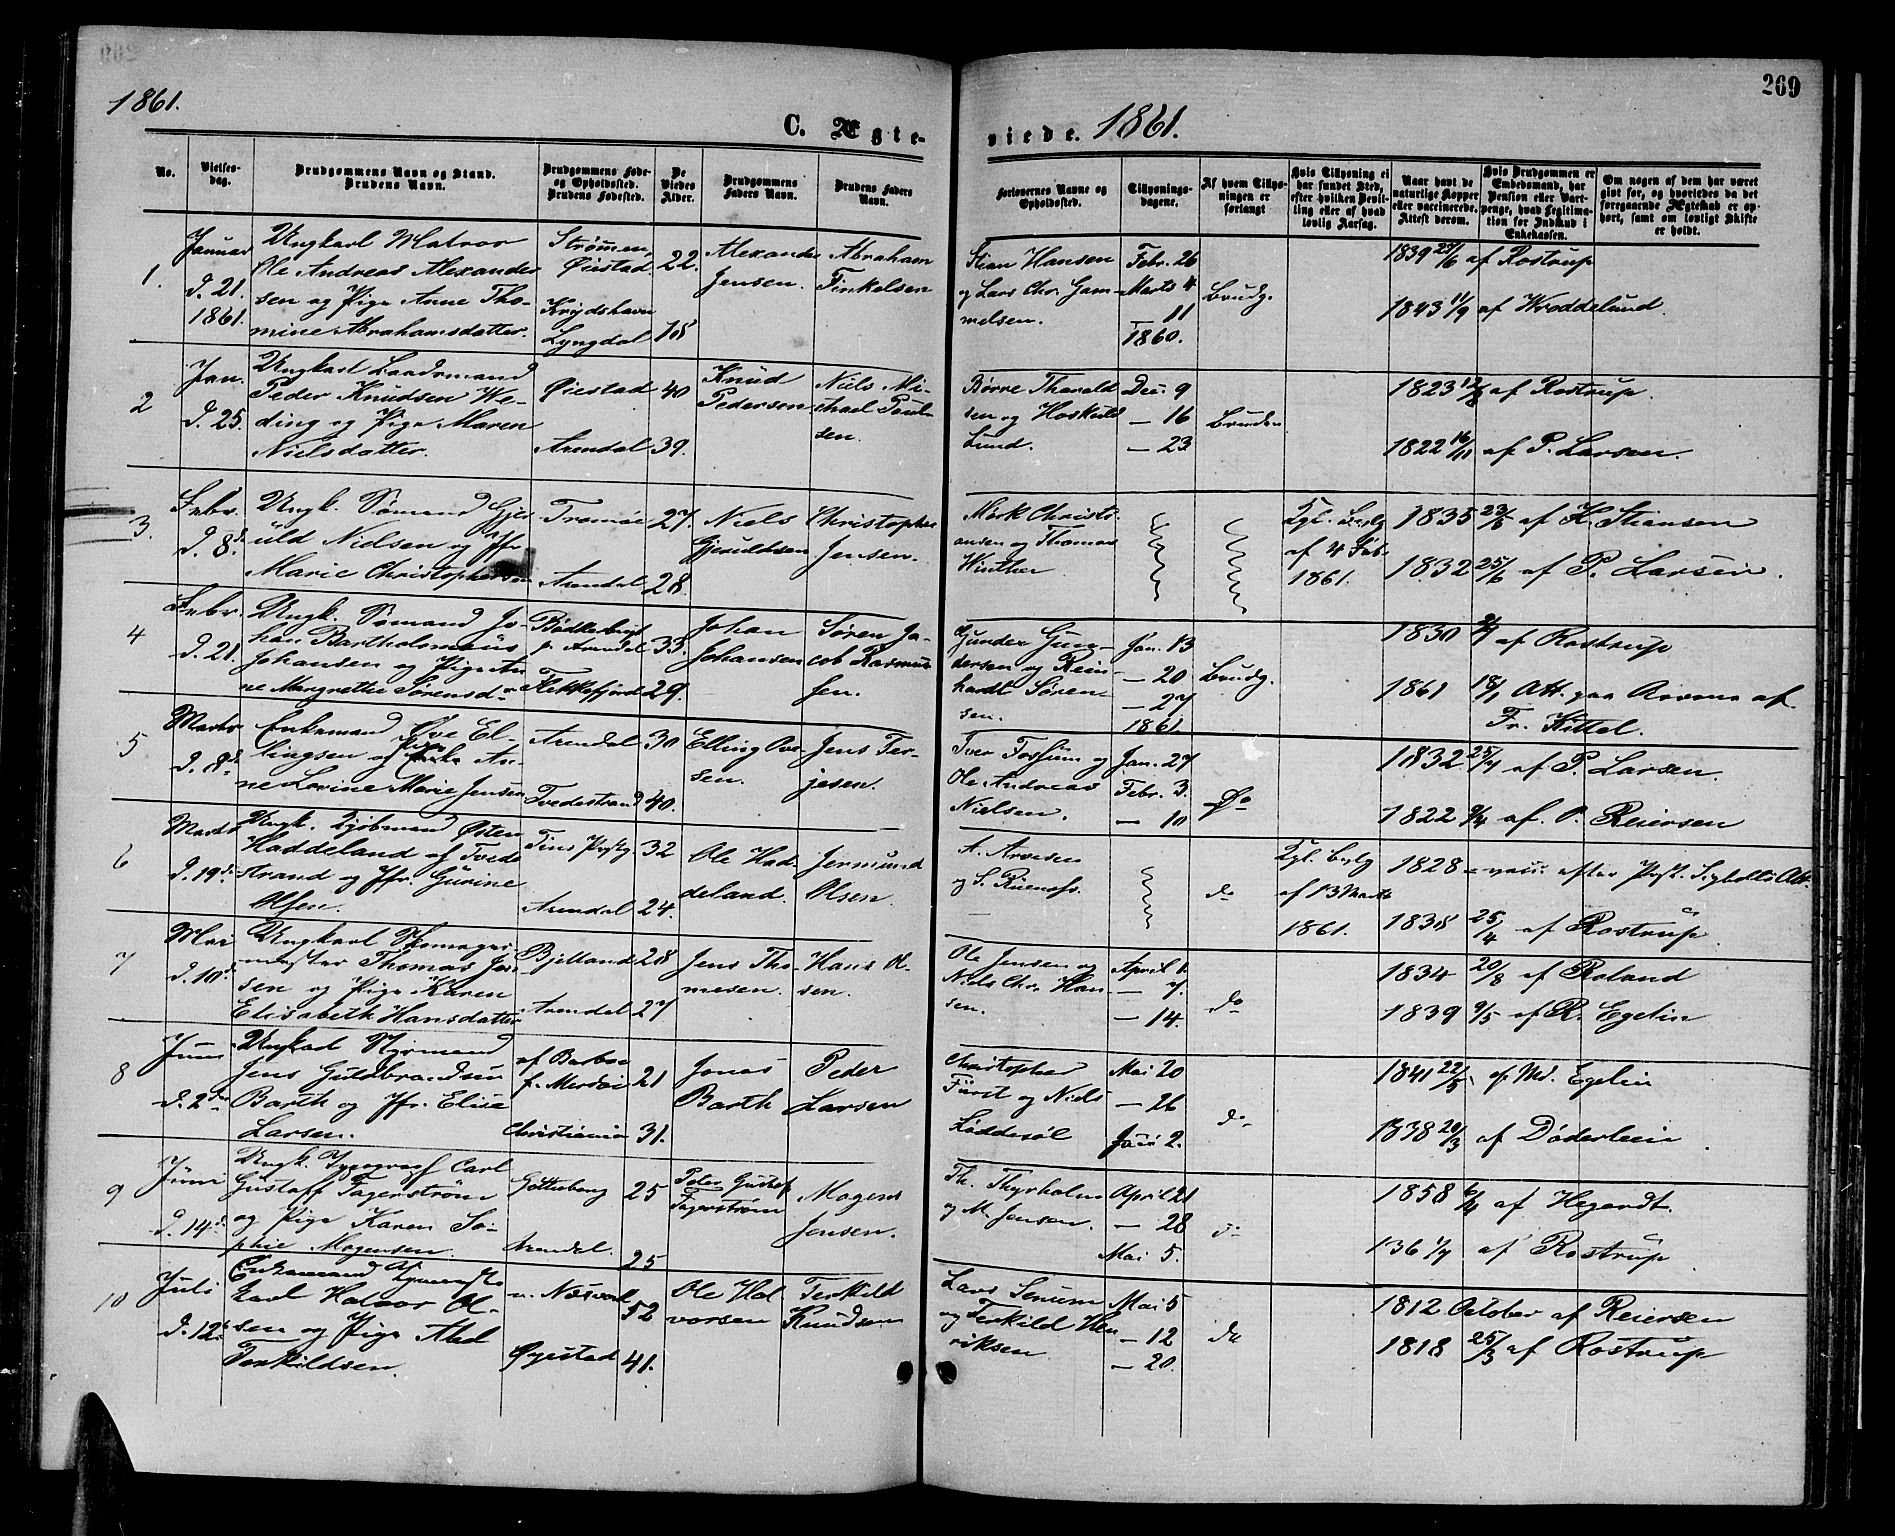 1861.
269
C. Ægte-
viede. 1861.
No.
Vielses-
dag.
Brudgommens Navn og Stand.
Brudens Navn.
Brudgommens Føde-
og Opholdssted.
Brudens Fødested.
De
Viedes
Alder.
Brudgommens
Faders Navn.
Brudens Faders
Navn.
Forlovernes Navne og
Opholdssted.
Tillysnings-
dagene.
Af hvem Tillys-
ningen er
forlangt
Hvis Tillysning ei
har fundet Sted,
efter hvilken Bevil-
ling eller af hvad
lovlig Aarsag.
Naar havt de
naturlige Kopper
eller vaccinerede.
Attest derom.
Hvis Brudgommen er
Embedsmand, har
Pension eller Vart-
penge, hvad Legitima-
tion for Indskud i
Enkekassen.
Om nogen af dem har været
gift før, og hvorledes da det
foregaaende Ægteskab er op-
hørt, samt om lovligt Skifte
er holdt.
1.
Januar
d. 21.
1861.
Ungkarl Matros
Ole Andreas Alexander
sen og Pige Anne Tho-
mine Abrahamsdatter.
Strømen,
Øiestad.
Krydshavn
Lyngdal
22.
18
Alexander
Jensen.
Abraham
Tinkelsen
Stian Hansen
og Lars Chr. Gam-
melsen.
Febr. 26
Marts 4
11
1860.
Brudg.
1839 27/6 af Rostrup
1843 11/9 af Wroddelund.
2
Jan.
d. 25.
Ungkarl Laadsmand
Peder Knudsen We-
ding og Pige Maren
Nielsdatter.
Øiestad
Arendal
40
39.
Knud
Pedersen
Niels Mi-
chael Paul-
sen.
Børre Tharald
sen og Hoskuld
Lund.
Dec. 9
— 16
— 23
Bruden
1823 12/8 af Rostrup.
1822 16/11 af P. Larsen.
3.
Febr.
d. 8d.
Ungk. Sømand Gjer
uld Nielsen og Jfr
Marie Christophersen
Tromøe
Arendal
27.
28.
Niels
Gjeruldsen
Christopher
Jensen.
Mørk Christi-
ansen og Thomas
Winther
Kgl. Bevlg
af 4 Feb.
1861.
1835 23/5 af H. Stiansen
1832 25/6 af P. Larsen.
4
Febr.
d. 21.
Ungk. Sømand Jo-
han Bartholomæus
Johansen og Pige An
ne Margrethe Sørensd.
p. Arendal
Flekkefjord
33.
29.
Johan
Johansen
Søren Ja-
cob Rasmus-
sen.
Gunder Gun-
dersen og Rein-
hardt Søren-
sen.
Jan. 13
— 20
— 27
1861.
Brudg.
1830 af Rostrup
1861 18/1 Att. paa Arrene af
Fr. Kittel.
5
Marts
d. 8d.
Enkemand Ove El-
lingsen og Pige An-
ne Lovine Marie Jensen
Arendal
Tvedestrand
30
40.
Elling Ove-
sen.
Jens Ter-
jesen.
Iver Fossum og
Ole Andreas
Nielsen.
Jan. 27
Febr. 3.
— 10
Do
1832 25/4 af P. Larsen.
1822 9/4 af O. Reiersen
6
Marts
d. 19d.
Ungk. Kjøbmand Østen
Haddeland af Tvede
strand og Jfr. Gurine
Olsen.
Arendal
32
24.
Ole Had
deland.
Jermund
Olsen.
A. Arnesen
Kgl. Bevlg
af 13 Marts
1861.
do
1828 vacc. efter Præst. Att.
1838 25/4 af Rostrup.
7
Mai
d. 10d.
Ungkarl Skomager-
mester Thomas Jen
sen og Pige Karen
Elisabeth Hansdatter
Bjelland
Arendal
28
27
Jens Tho-
mesen.
Hans Ol-
sen.
Ole Jensen og
Niels Chr. Han-
sen.
April 1.
— 7.
— 14.
do
1834 20/8 af Roland
1839 9/5 af R. Egelin
8
Juni
d. 2den
Ungkarl Styrmand
Jens Guldbrandsen
Barth og Jfr. Elise
Larsen.
af Barboe
f. Merdøe
Christiania
21
31.
Jonas
Barth
Peder
Larsen
Christopher
Fürst og Niels
Løddesøl
Mai 20
— 26
Juni 2.
do
1841 22/5. af Md. Egelin
1838 20/3 af Døderlein
9
Juni
d. 14d.
Ungk. Typograf Carl
Gustaff Fagerstrøm
og Pige Karen So-
phie Mogensen.
Gøtteborg
Arendal.
25
25
Peter Gustaf
Fagerstrøm
Mogens
Jensen.
Th. Thyrholm
og M. Jensen.
April 21
— 28
Mai 5.
do
1858 6/4 af Hegardt.
136 1/7 af Rostrup
10
Juli
d. 12te
Enkemand
Karl Halvor Ol-
sen og Pige Abel
Terkildsen.
Øyestad
52
41.
Ole Hal
vorsen
Terkild
Knudsen
Lars Senum
og Terkild Hen
riksen
Mai 5
— 12
— 20.
do
1812 October af Reiersen
1818 25/3 af Rostrup